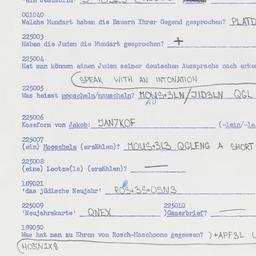 001040
Welche Mundart haben die Bauern Ihrer Gegend gesprochen? PLATD
225003
Haben die Juden die Mundart gesprochen? +
225004
Hat man können einen Juden seiner deutschen Aussprache nach erke
SPEAK WITH AN INTONATION
225005
Was heisst mooscheln/muuscheln? QGL
225006
Koseform von Jakob: JAN7KOF (-lein/-le
225007
(ein) Mooschele (erzählen)? QGLENG A SHORT
225008
(eine) Lootze(ls) (erzählen)? —
189021
'das jüdische Neujahr'
225009 225010
'Neujahrskarte' QNEX )Gaserbrief? —
189050
Was hat man zu Ehren von Rosch-Haschoone gegessen? )+APF3L